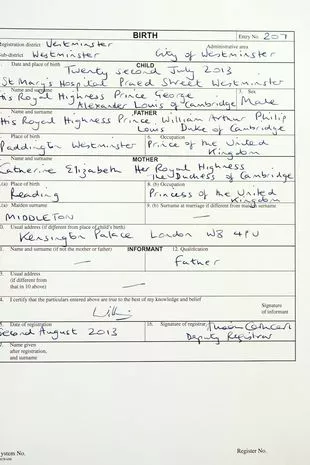 BIRTH Entry No. 207
Registration district Westminster Administrative area
Sub-district Westminster City of Westminster
Date and place of birth CHILD
Twenty second July 2013
St Mary's Hospital Praed Street Westminster
Name and surname 3. Sex
His Royal Highness Prince George
Alexander Louis of Cambridge Male
Name and surname FATHER
His Royal Highness Prince William Arthur Philip
Louis Duke of Cambridge
Place of birth 6. Occupation
Paddington Westminster Prince of the United
Kingdom
Name and surname MOTHER
Catherine Elizabeth Her Royal Highness
The Duchess of Cambridge
(a) Place of birth 8. (b) Occupation
Reading Princess of the United
Kingdom
(a) Maiden surname 9. (b) Surname at marriage if different from maiden surname
MIDDLETON —
Usual address (if different from place of child's birth)
Kensington Palace London W8 4PU
Name and surname (if not the mother or father) INFORMANT 12. Qualification
— Father
Usual address
(if different from
that in 10 above) —
I certify that the particulars entered above are true to the best of my knowledge and belief
Signature
of informant
Date of registration 16. Signature of registrar
Second August 2013
Deputy Registrar
Name given
after registration,
and surname
System No. Register No.